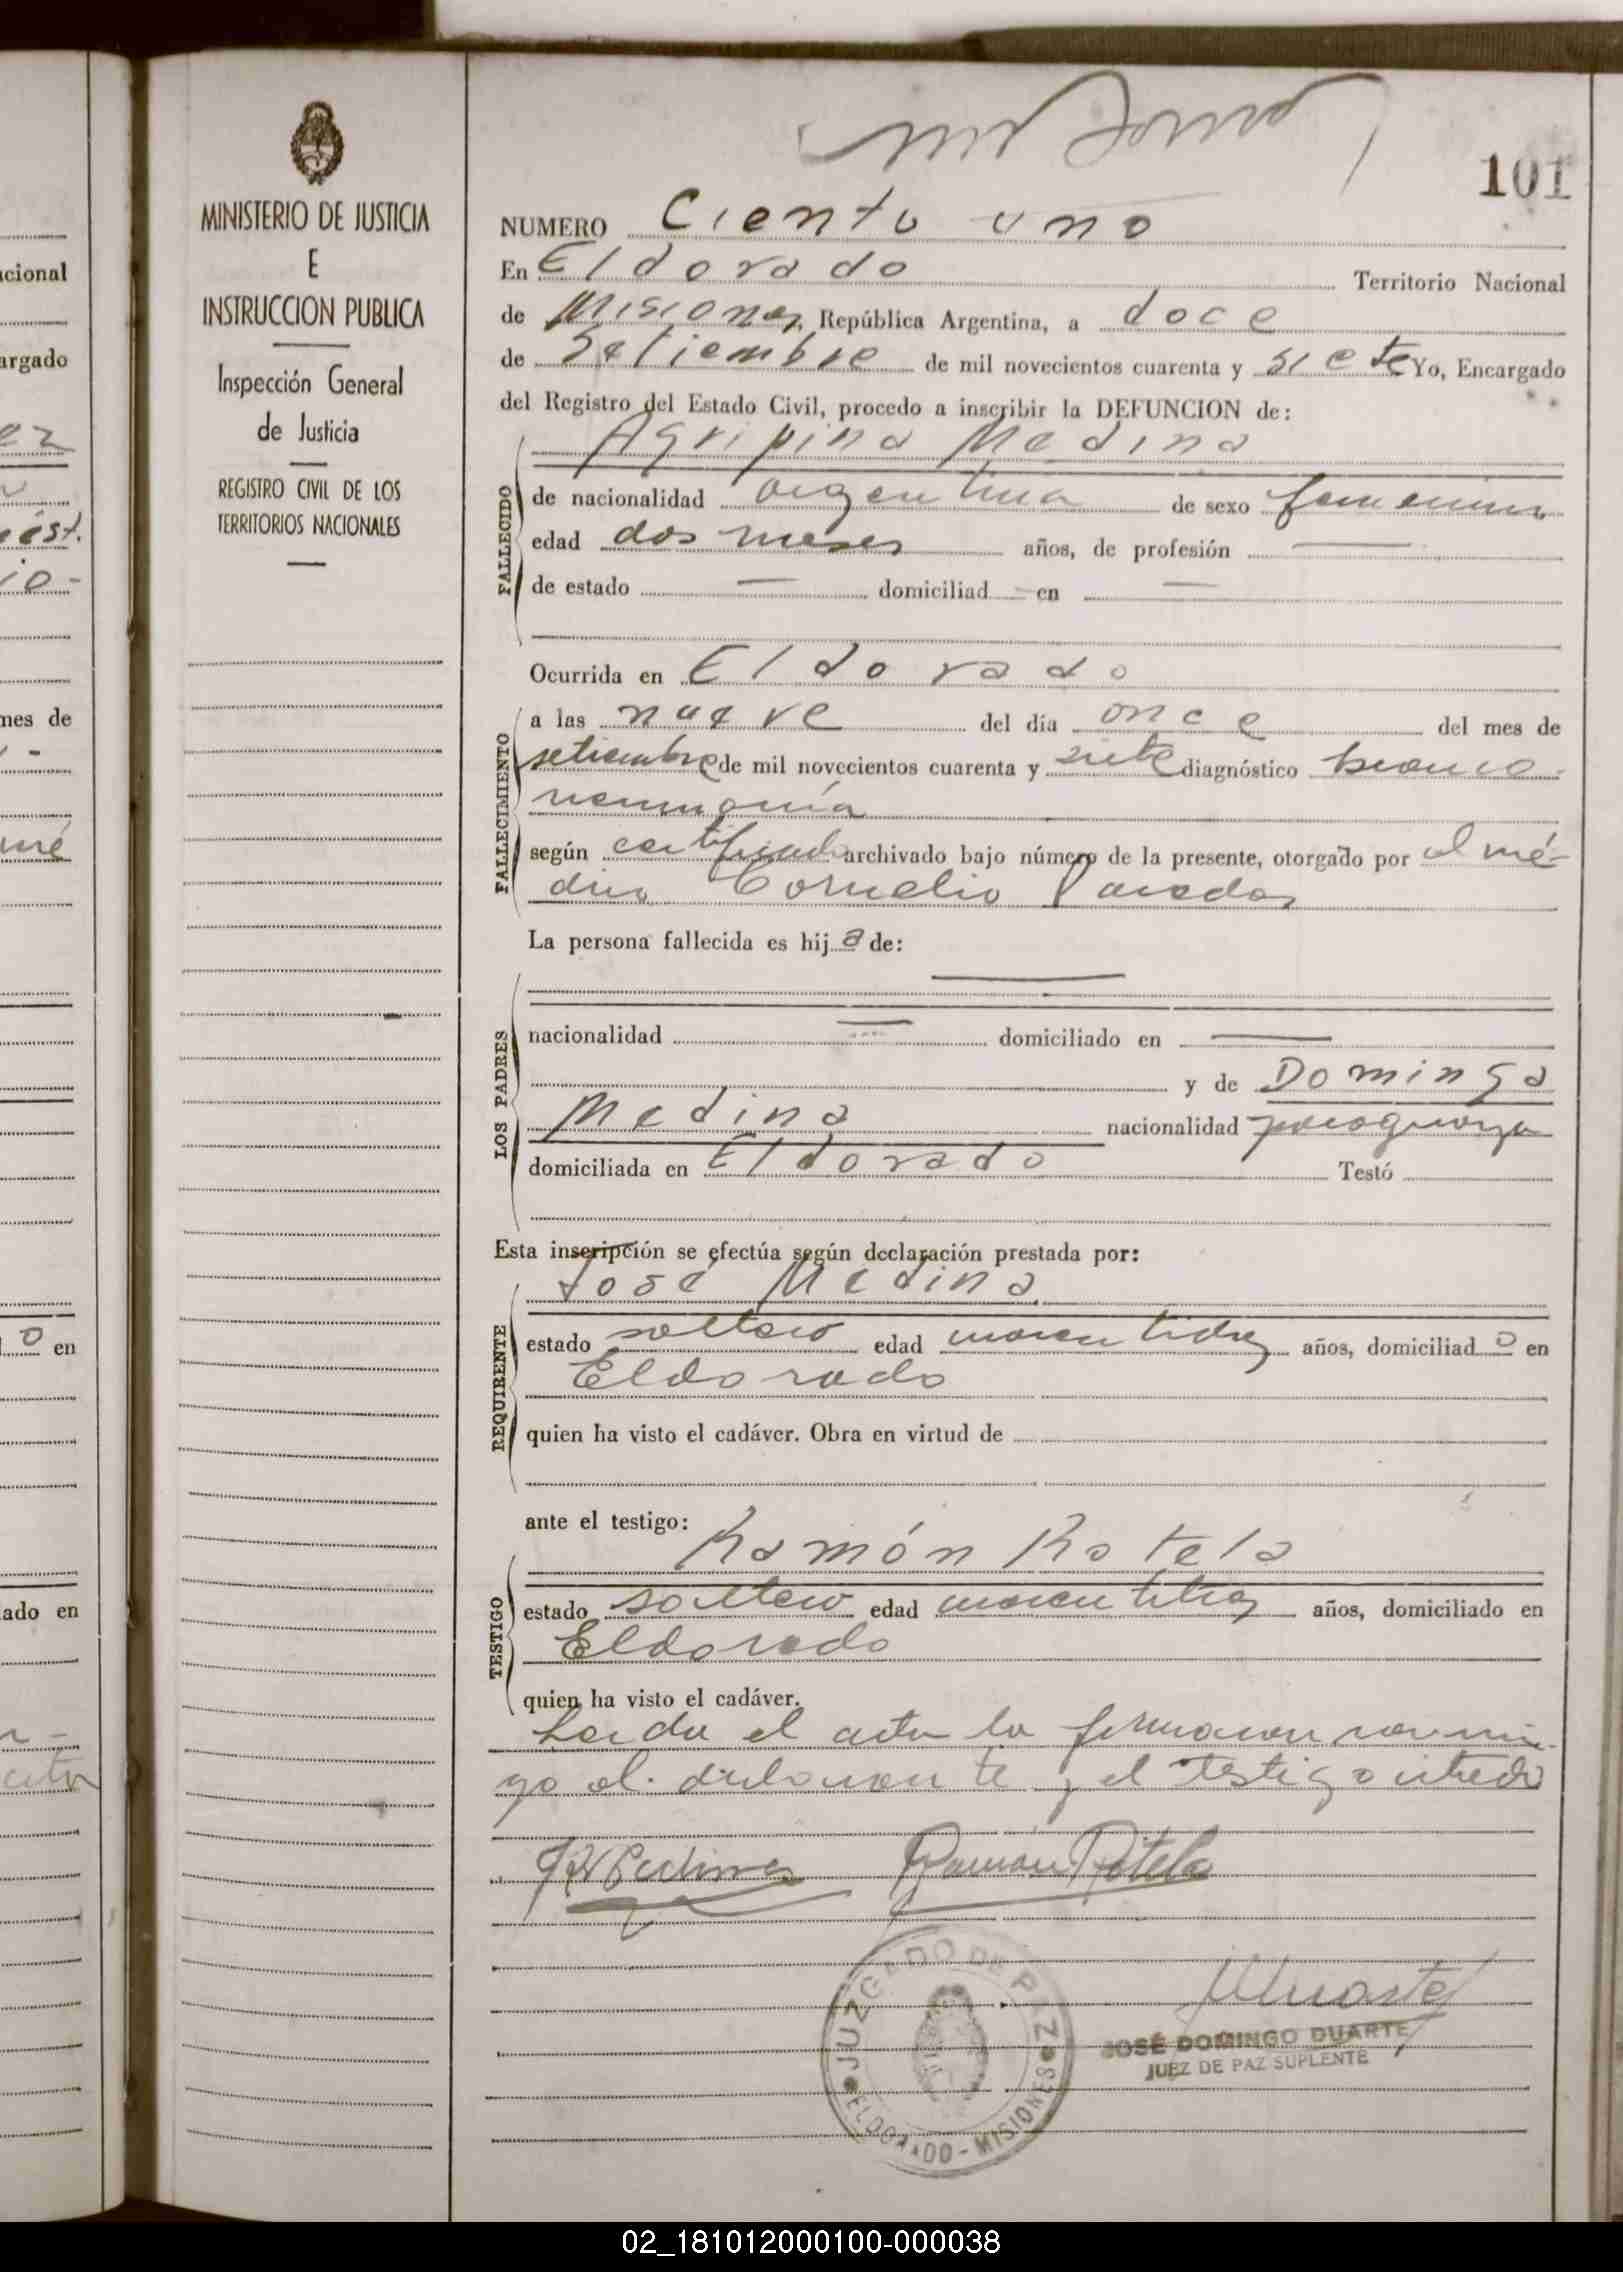 101
MINISTERIO DE JUSTICIA
E
INSTRUCCION PUBLICA
Inspección General
de Justicia
REGISTRO CIVIL DE LOS
TERRITORIOS NACIONALES
NUMERO Ciento uno
En Eldorado Territorio Nacional
de Misiones, República Argentina, a doce
de Setiembre de mil novecientos cuarenta y siete Yo, Encargado
del Registro del Estado Civil, procedo a inscribir la DEFUNCION de:
Agripina Medina
FALLECIDO
de nacionalidad argentina de sexo femenino
edad dos meses años, de profesión —
de estado — domiciliad — en —
Ocurrida en Eldorado
FALLECIMIENTO
a las nueve del día once del mes de
setiembre de mil novecientos cuarenta y siete diagnóstico bronco-
neumonía
según certificado archivado bajo número de la presente, otorgado por el mé-
dico Cornelio Paredes
La persona fallecida es hija de:
LOS PADRES
—
nacionalidad — domiciliado en —
y de Dominga
Medina nacionalidad paraguaya
domiciliada en Eldorado Testó
Esta inscripción se efectúa según declaración prestada por:
José Medina
REQUIRENTE
estado soltero edad domiciliad años, domiciliado en
Eldorado
quien ha visto el cadáver. Obra en virtud de
ante el testigo:
Ramón Rotela
TESTIGO
estado soltero edad años, domiciliado en
Eldorado
quien ha visto el cadáver.
Leida el acta la firmaron conmi-
go el declarante y el testigo citado
Ramón Rotela
JUZGADO DE PAZ
ELDORADO - MISIONES
JOSÉ DOMINGO DUARTE
JUEZ DE PAZ SUPLENTE
cional
argado
ez
mes de
mé
o en
ado en
02_181012000100-000038